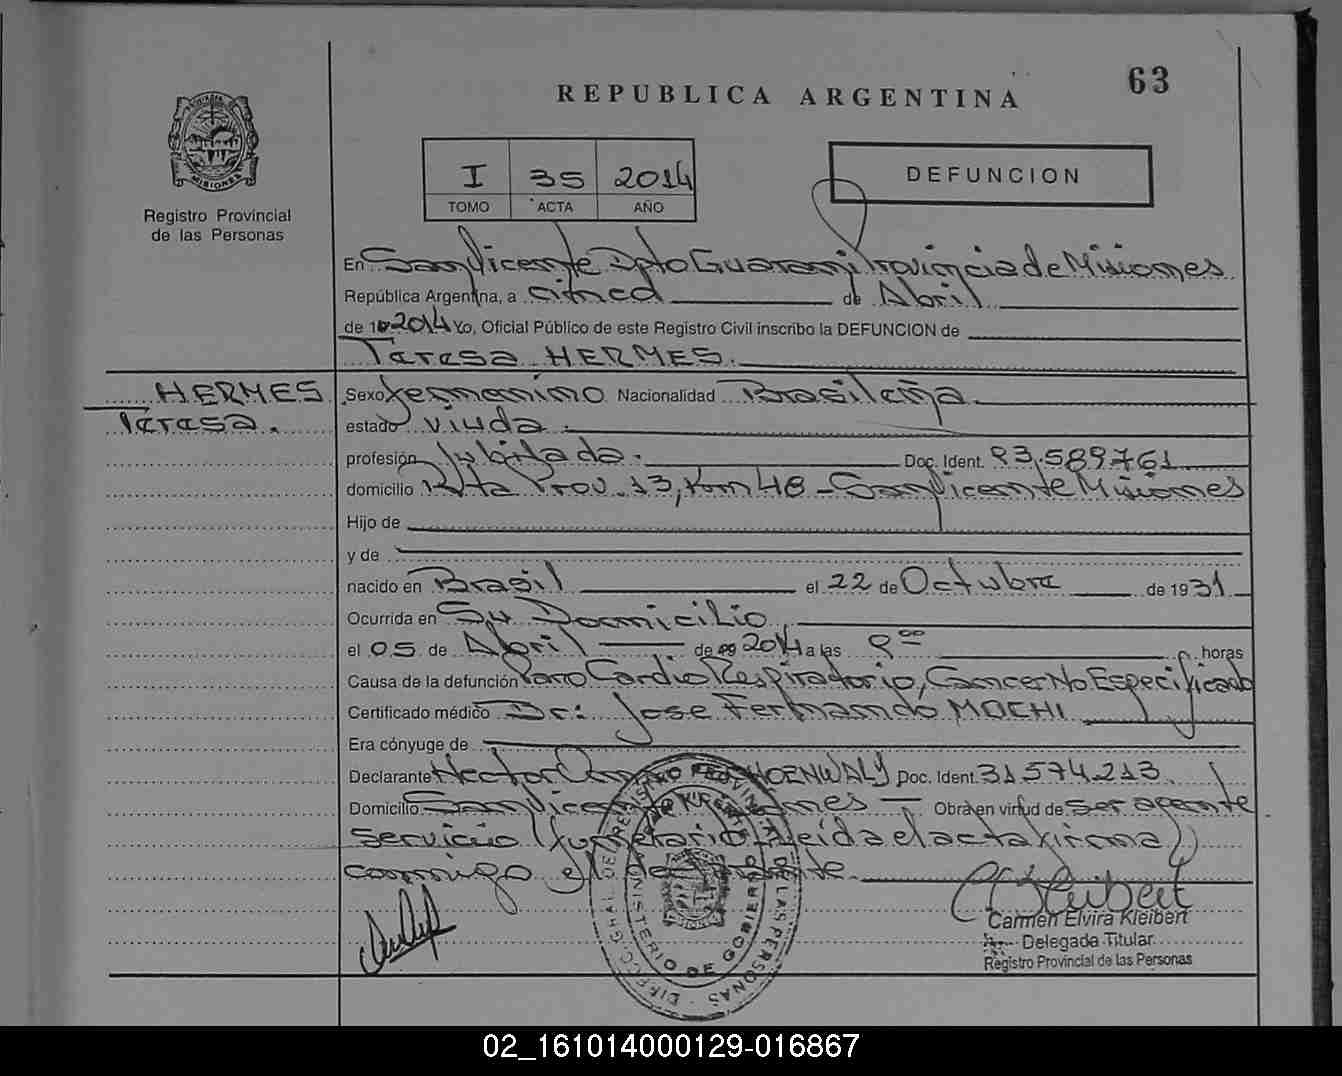 63
REPUBLICA ARGENTINA
MISIONES
Registro Provincial
de las Personas
I 35 2014
TOMO ACTA AÑO
DEFUNCION
En San Vicente Dpto Guarani Provincia de Misiones
República Argentina, a cinco de Abril
de 2014 Yo, Oficial Público de este Registro Civil inscribo la DEFUNCION de
Teresa HERMES.
HERMES
Teresa.
Sexo femenino Nacionalidad Brasileña
estado viuda.
profesión Jubilada. Doc. Ident. 93,589761
domicilio Ruta Prov. 13, Km 48 - San Vicente Misiones
Hijo de
y de
nacido en Brasil el 22 de Octubre de 1931
Ocurrida en Su Domicilio
el 05 de Abril de 2014 a las 9 00 horas
Causa de la defunción Paro Cardio Respiratorio, Cancer No Especificado
Certificado médico Dr: Jose Fernando MOCHI
Era cónyuge de
Declarante Hector Doc. Ident. 31.574.213
Domicilio San Obra en virtud de ser agente
servicio funerario Leida el acta firma
conmigo el
DIRECC GRAL DEL REGISTRO PROVINCIAL DE LAS PERSONAS
MINISTERIO DE GOBIERNO
SAN VICENTE
C Kleibert
Carmen Elvira Kleibert
Delegada Titular
Registro Provincial de las Personas
02_161014000129-016867